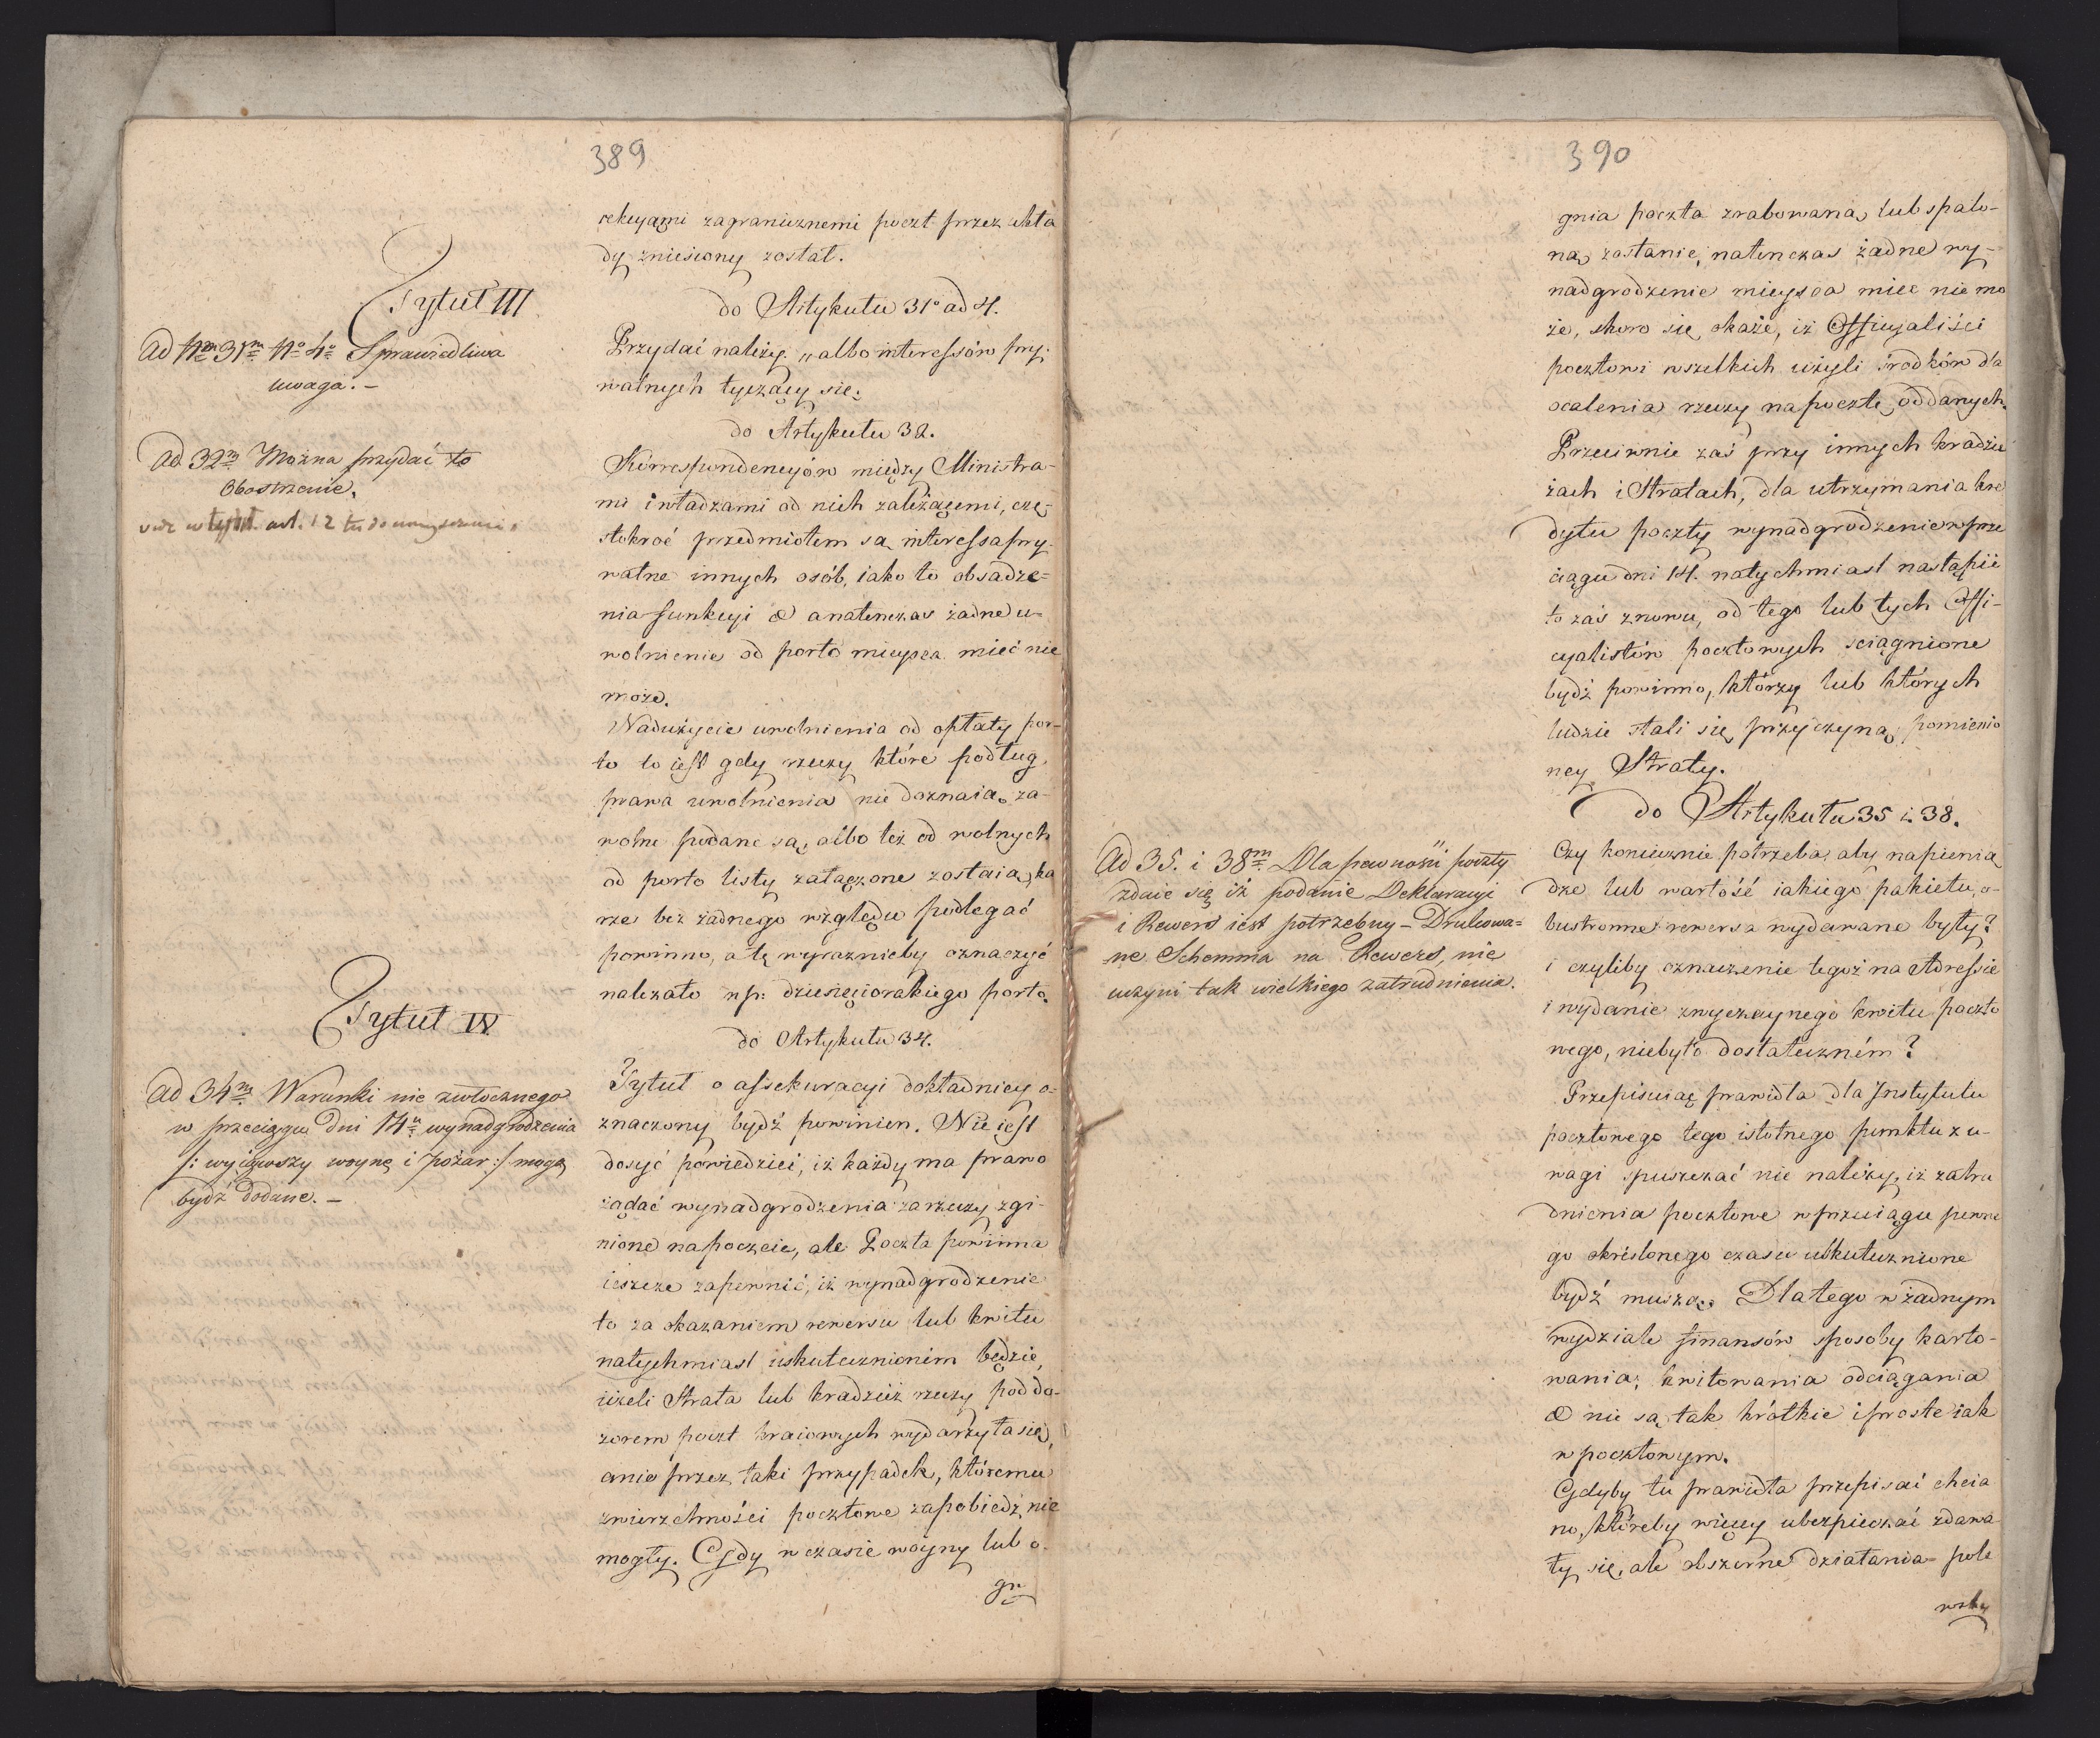 389
rekcyami zagranicznemi poczt przez ukła
dy zniesiony został.
Tytuł III
do Artykułu 31° ad 4.
Ad 31m No 4o Sprawiedliwa
uwaga. –
Przydać należy „albo interessów pry-
watnych tyczący się.
do Artykułu 32.
Ad 32m Można przydać to
Obostrzenie.
art. 12
Korrespondencyów między Ministra-
mi i władzami od nich zależącemi, czę-
stokroć przedmiotem są interessa pry-
watne innych osób, iako to obsadze=
nia funkcyi & a natenczas żadne u-
wolnienie od porto mieysca mieć nie
może.
Nadużycie uwolnienia od opłaty por-
to to iest gdy rzeczy które podług
prawa uwolnienia nie doznaią, za
wolne podane są, albo też od wolnych
od porto listy załączone zostaią, ka
rze bez żadnego względu podlegać
powinno, a tę wyraznieby oznaczyć
należało np: dziesięciorakiego porto.
Tytuł IV
do Artykułu 34.
Ad 34m Warunki nie zwłocznego
w przeciągu Dni 14u wynadgrodzenia
/: wyiąwszy woynę i pożar :/ mogą
bydź dodane. –
Tytuł o assekuracyi dokładniey o-
znaczony bydź powinien. Nie iest
dosyć powiedzieć, iż każdy ma prawo
żądać wynadgrodzenia za rzeczy zgi-
nione na poczcie, ale Poczta powinna
ieszcze zapewnić, iż wynadgrodzenie
to za okazaniem rewersu lub kwitu
natychmiast uskutecznionem będzie,
ieżeli Strata lub kradzież rzeczy pod do-
zorem poczt kraiowych wydarzyła się,
a nie przez taki przypadek, któremu
zwierzchności pocztowe zapobiedz nie
mogły. Gdy w czasie woyny lub o-
gn
390
gnia poczta zrabowaną, lub spalo-
ną zostanie, natenczas żadne wy-
nadgrodzenie mieysca mieć nie mo
że, skoro się okaże, iż Officyaliści
pocztowi wszelkich użyli środków dla
ocalenia rzeczy na pocztę oddanych.
Przeciwnie zaś przy innych kradzie
żach i Stratach, dla utrzymania kre
dytu poczty wynadgrodzenie w prze
ciągu dni 14. natychmiast nastąpić
to zaś znowu, od tego lub tych Offi-
cyalistów pocztowych sciągnione
bydź powinno, którzy lub których
ludzie stali się przyczyną pomienio
ney Straty.
do Artykułu 35 i 38.
Ad 35. i 38m Dla pewności poczty
zdaie się iż podanie Deklaracyi
i Rewers iest potrzebny – Drukowa=
ne Schemma na Rewers, nie
uczyni tak wielkiego zatrudnienia.
Czy koniecznie potrzeba, aby na pienią
dze lub wartość iakiego pakietu, o-
bustronne rewersa wydawane były?
i czyliby oznaczenie tegoż na Adressie
i wydanie zwyczaynego kwitu poczto
wego, niebyło dostatecznem?
Przepisuiąc prawidła dla Instytutu
pocztowego tego istotnego punktu z u-
wagi spuszczać nie należy, iż zatru
dnienia pocztowe w przeciągu pewne
go okrislonego czasu uskutecznione
bydź muszą. Dlatego w żadnym
wydziale finansów sposoby karto-
wania, kwitowania odciągania
& nie są tak krótkie i proste iak
w pocztowym.
Gdyby tu prawidła przepisać chcia
no, któreby więcey ubezpieczać zdawa
ły się, ale obszerne działania pole